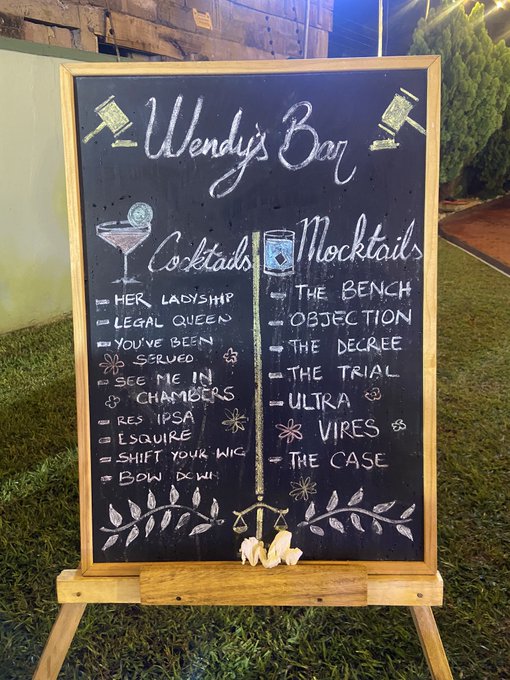 Wendy's Bar
Cocktails
- HER LADYSHIP
- LEGAL QUEEN
- YOU'VE BEEN
SERVED
- SEE ME IN
CHAMBERS
- RES IPSA
- ESQUIRE
- SHIFT YOUR WIG
- BOW DOWN
Mocktails
- THE BENCH
- OBJECTION
- THE DECREE
- THE TRIAL
- ULTRA
VIRES
- THE CASE